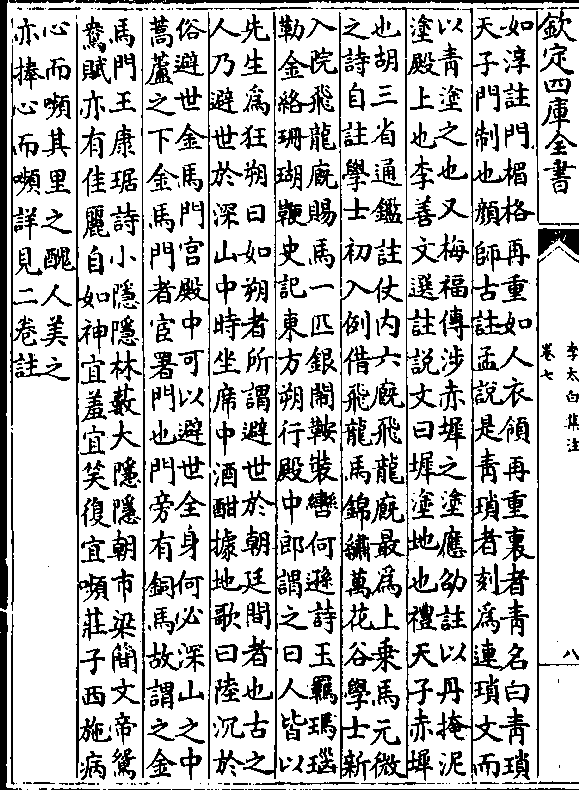 欽定四庫全書
李太白集注
卷七
八
如淳註門楣格再重如人衣領再重裏者青名曰青瑣
天子門制也顔師古註孟説是青瑣者刻為連瑣文而
以青塗之也又梅福傳涉赤墀之塗應劭註以丹掩泥
塗殿上也李善文選註説文曰墀塗地也禮天子赤墀
也胡三省通鑑註仗内六廐飛龍廐最為上乗馬元微
之詩自註學士初入例借飛龍馬錦繡萬花谷學士新
入院飛龍廐賜馬一匹銀閙鞍裝轡何遜詩玉羈瑪瑙
勒金絡珊瑚鞭史記東方朔行殿中郎謂之曰人皆以
先生為狂朔曰如朔者所謂避世於朝廷間者也古之
人乃避世於深山中時坐席中酒酣據地歌曰陸沉於
俗避世金馬門宫殿中可以避世全身何必深山之中
蒿蘆之下金馬門者宦署門也門旁有銅馬故謂之金
馬門王康琚詩小隱隱林藪大隱隱朝市梁簡文帝鴛
鴦賦亦有佳麗自如神宜羞宜笑復宜嚬莊子西施病
心而嚬其里之醜人美之
亦捧心而嚬詳見二卷註